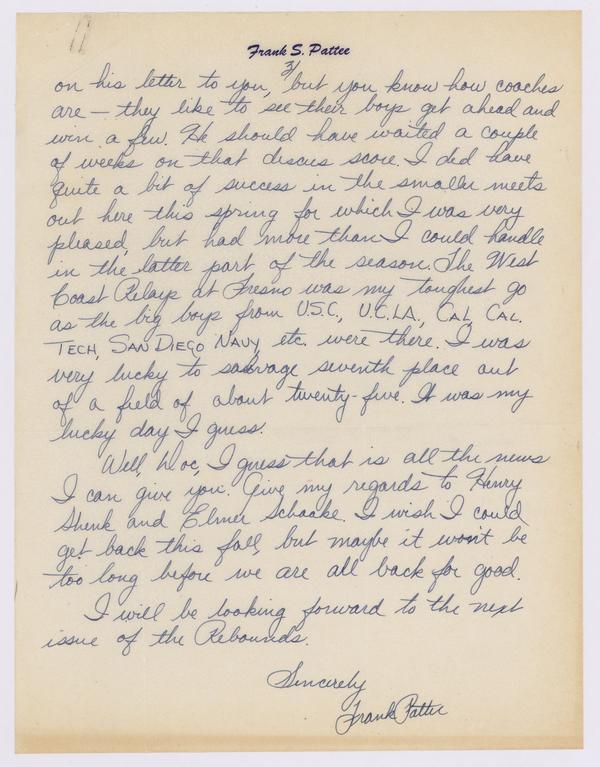 Frank S. Pattee
3/
on his letter to you, but you know how coaches
are — they like to see their boys get ahead and
win a few. He should have waited a couple
of weeks on that discus score. I did have
quite a bit of success in the smaller meets
out here this spring for which I was very
pleased, but had more than I could handle
in the latter part of the season. The West
Coast Relays at Fresno was my toughest go
as the big boys from U.S.C., U.C.L.A., CAL, CAL.
TECH, SAN DIEGO NAVY, etc. were there. I was
very lucky to salvage seventh place out
of a field of about twenty-five. It was my
lucky day I guess.
Well, Doc, I guess that is all the news
I can give you. Give my regards to Henry
Shenk and Elmer Schaake. I wish I could
get back this fall, but maybe it won't be
too long before we are all back for good.
I will be looking forward to the next
issue of the Rebounds.
Sincerely
Frank Pattee